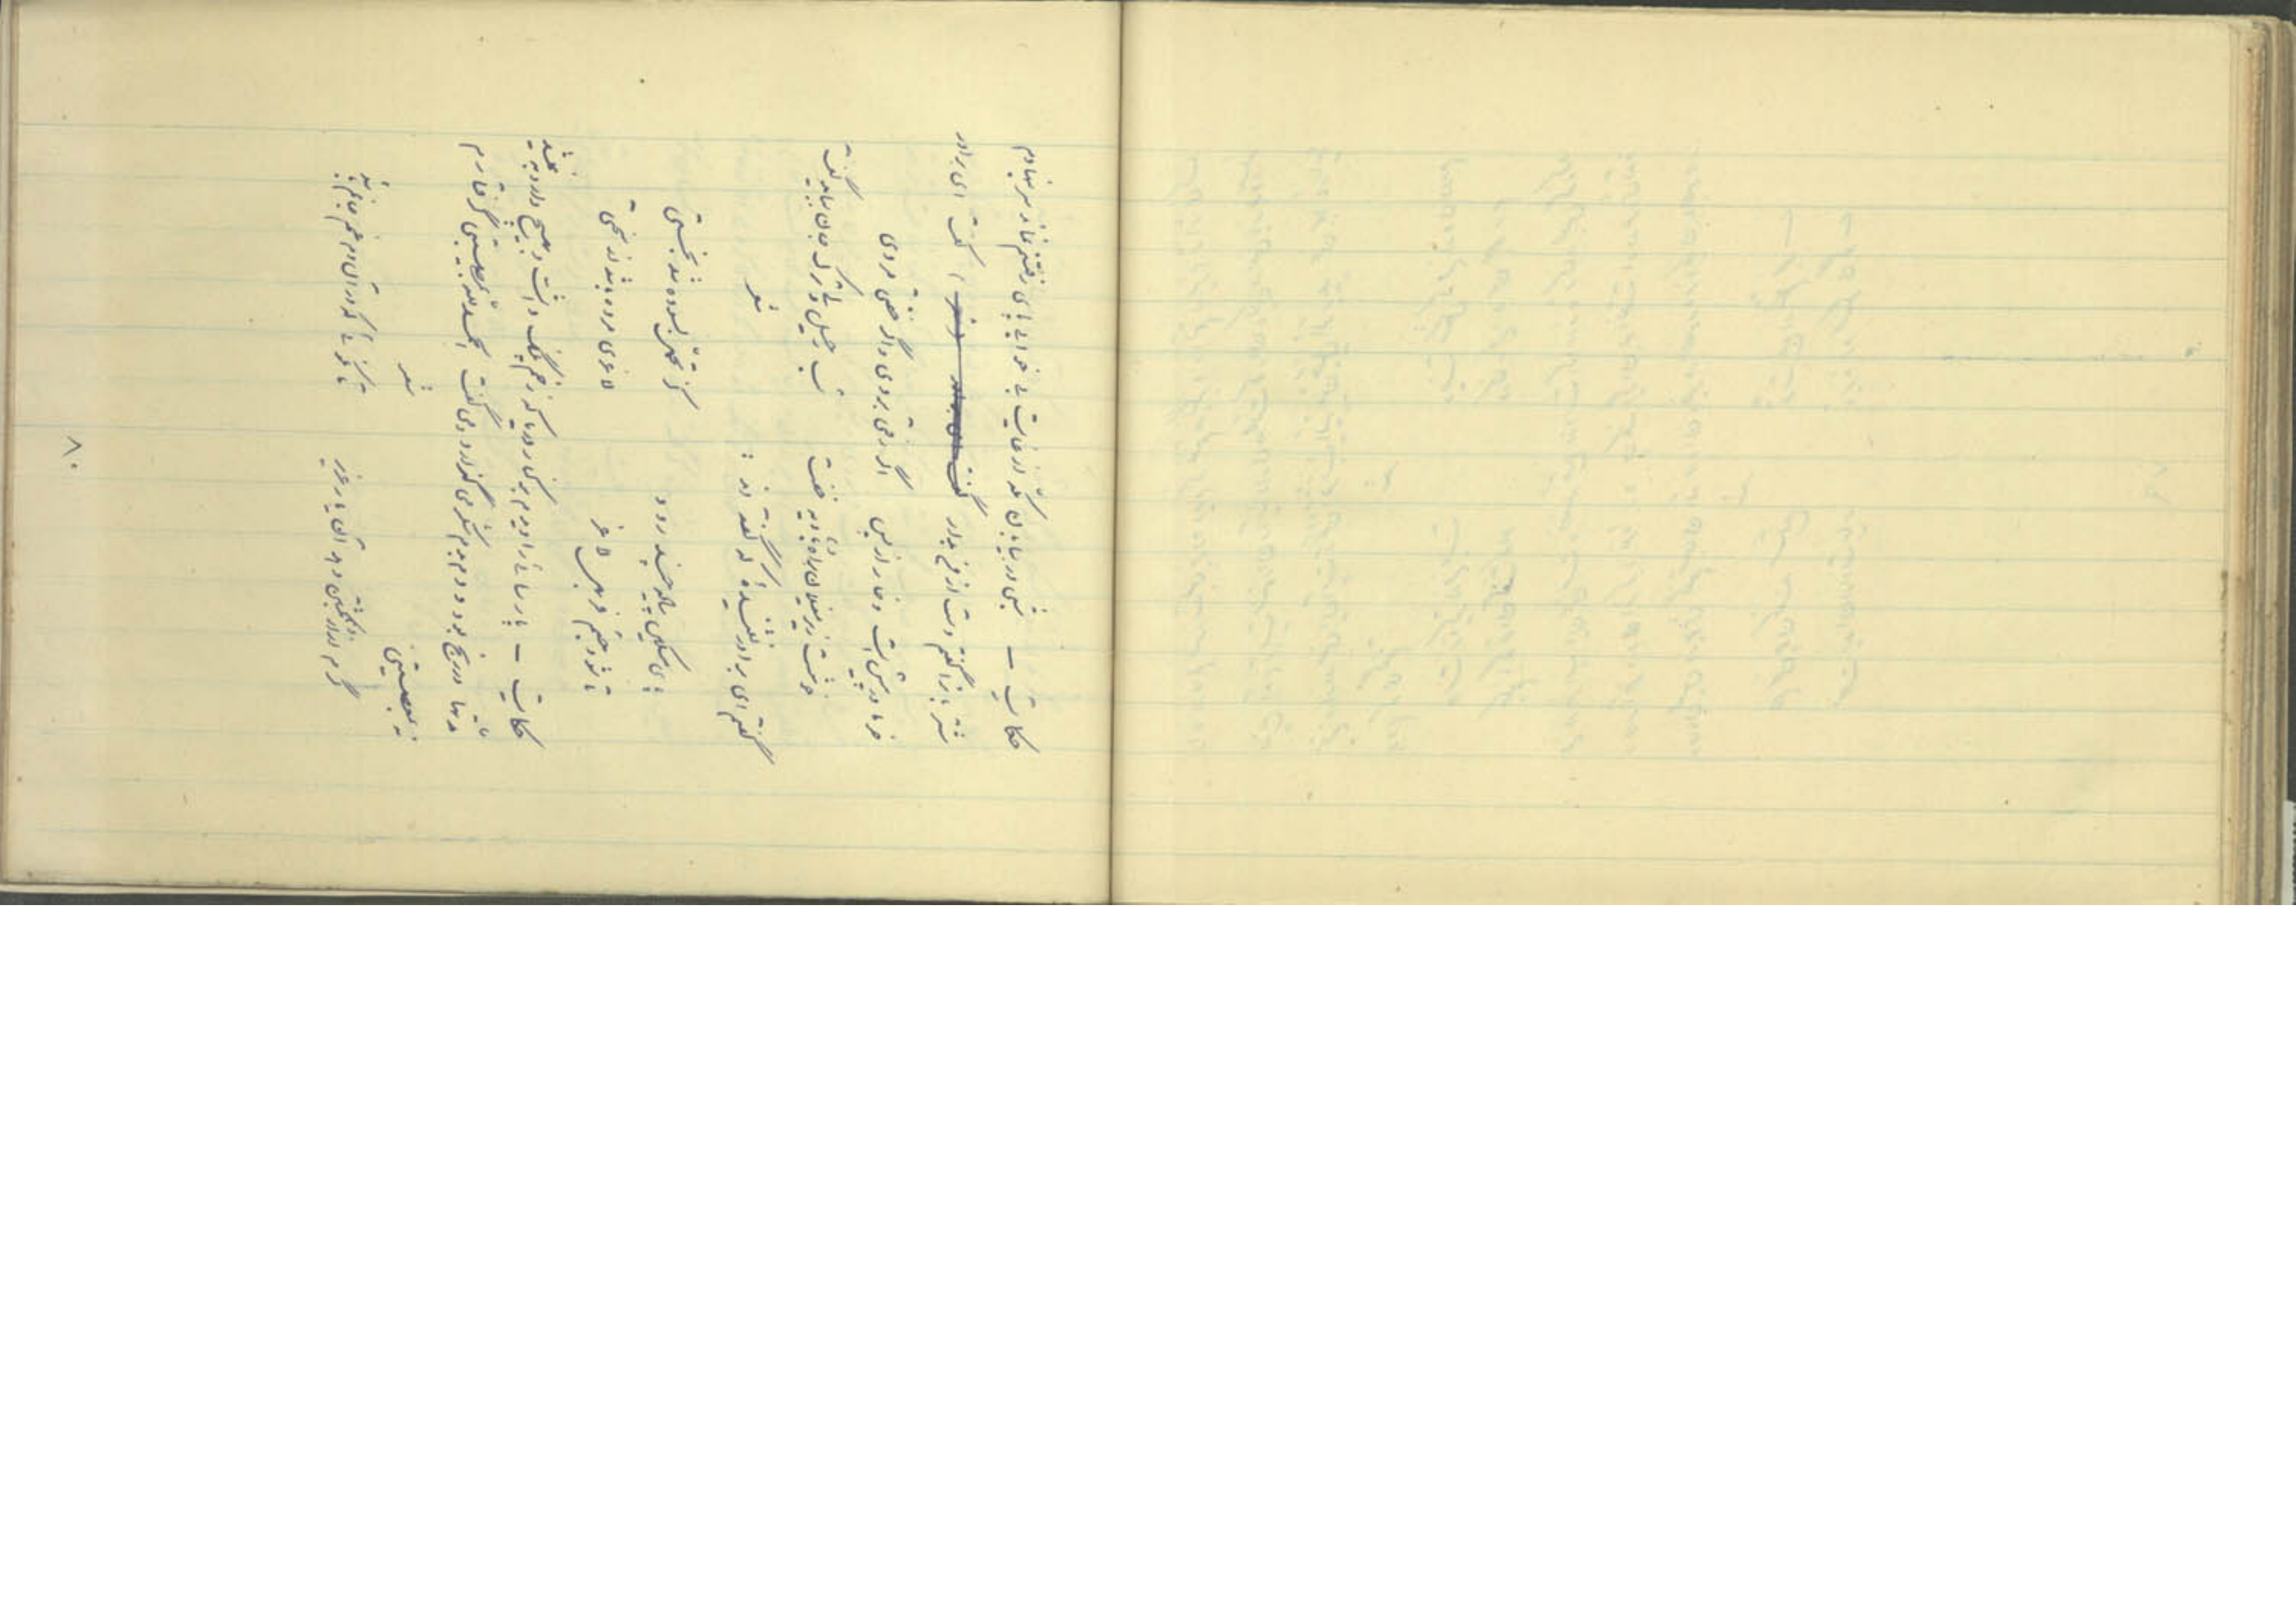 حکایت – شبی در بیابان مکه از غایت بی خوابی پای رفتنم نماند سر نهادم
شتربان را گفتم دست از من بدار گفت ای برادر
حرم در پیش است و حرامی از پس اگر رفتی بردی و اگر خفتی مردی
خوشست زیر مغیلان براه بادیه خفت شب رحیل ولی ترک جان بباید گفت
گفتم ای برادر نشنیدهٔ که گفته اند :
شعر
پای مسکین پیاده چند رود کز تحمل ستوه شد بختی
تا شود جسم فربهی لاغر لاغری مرده باشد از سختی
حکایت – پارسائی را دیدم بر کنار دریا که زخم پلنگ داشت و بهیچ دارو به نمیشد
مدتها در رنج بود و دم بدم شکر می گذارد و می گفت الحمدلله که بمصیبتی گرفتارم
نه بمعصیتی
شعر
گرم زار بکشتن دهد آن یار عزیز تا نگوئی که در آن دم غم جانم باشد
۸۰